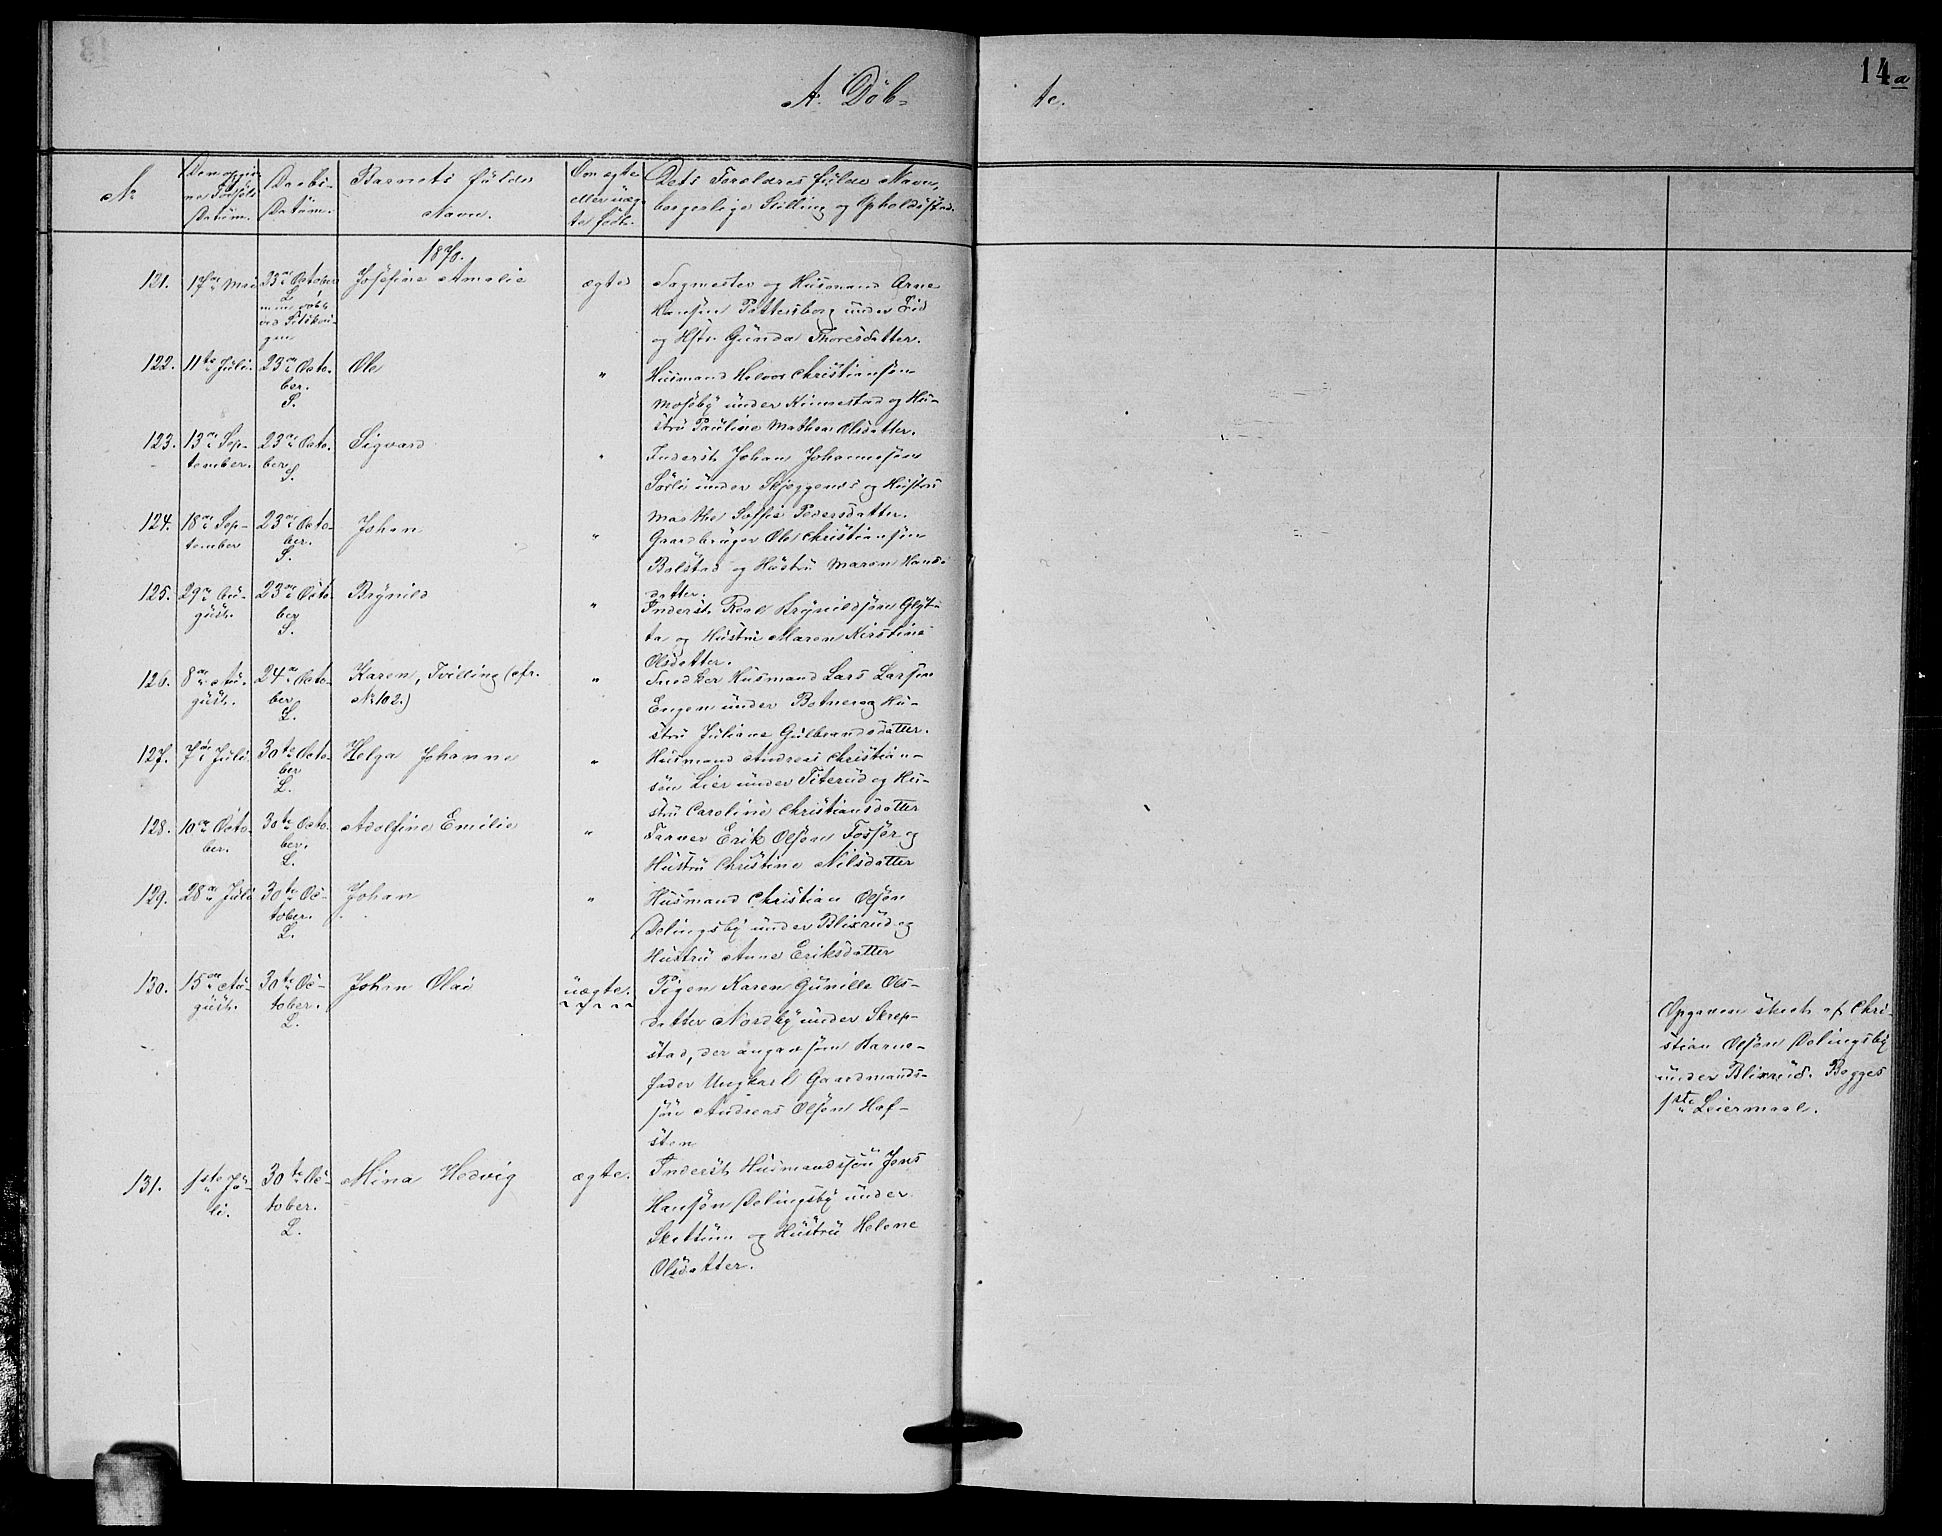 14a
A. Døb-
te.
No
Barnets fulde
Navn.
Daabs-
Datum.
Om ægte
eller uæg-
te født.
Dets Forældres fulde Navn,
borgerlige Stilling og Opholdssted.
1870.
121. 17de Mai 23de October
L.
Josefine Amalie ægte
Sagmester og Husmand Arne
Hansøn Pottersborg under Eid
og Hstr. Gunda Thoresdatter.
122. 11te Juli. 23de Octo-
ber.
S.
Ole "
Husmand Halvor Christiansøn
Mosøby under Kinnestad og Hu-
stru Pauline Mathea Olsdatter.
123. 13de Sep-
tember. 23de Octo-
ber.
S.
Sigvard "
Inderst Johan Johannesøn
Sørli under Skjeggenæs og Hustru
Marthe Soffie Pedersdatter.
124. 18de Sep-
tember 23de Octo-
ber.
S.
Johan "
Gaardbruger Ole Christiansøn
Bolstad og Hustru Maren Hans-
datter.
125. 29de Au-
gust. 23de Octo-
ber
S.
Brynild "
Inderst Roal Brynildsøn Glyt-
ta og Hustru Maren Kirstine
Olsdatter.
126. 8de Au-
gust. 24de Octo-
ber
L.
Karen, Tvilling (cfr.
No 102.) "
Snedker Husmand Lars Larsen
Engen under Botner og Hu-
stru Juliane Gulbrandsdatter.
127. 7de Juli 30te Octo-
ber
L.
Helga Johanne "
Husmand Andreas Christian-
søn Lier under Titerud og Hu-
stru Caroline Christiansdatter
128. 10de Octo-
ber. 30te Octo-
ber.
L.
Adolfine Emilie "
Farver Erik Olsøn Fossør og
Hustru Christine Nilsdatter
129. 28de Juli 30te Oc-
tober.
L.
Johan "
Husmand Christian Olsøn
Dølingsby under Blixrud og
Hustru Anne Eriksdatter
130. 15de Au-
gust. 30te Oc-
tober.
L.
Johan Olai uægte.
Pigen Karen Gunille Ols-
datter Nordby under Skrep-
stad, der angav som Barne-
fader Ungkarl Gaardmands-
søn Andreas Olsøn Haf-
sten
Opgaven skeet af Chri-
stian Olsøn Dølingsby
under Blixrud. Begges
1ste Leiermaal.
131. 1ste Ju-
li. 30te Oc-
tober.
L.
Mina Hedvig ægte.
Inderst Husmandssøn Jens
Hansøn Dølingsby under
Skottum og Hustru Helene
Olsdatter.